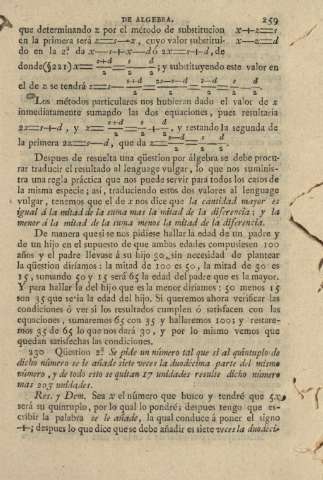 DE ALGEBRA. 259
que determinando z por el método de substitucion x+z=s
en la primera será z=s—x, cuyo valor substitui- x—z=d
do en la 2.ª da x—s+x=d ó 2x=s+d, de
donde (§221) x= s+d/2 = s/2 + d/2; y substituyendo este valor en
el de z se tendrá z=s— s+d/2 = 2s—s—d/2 = s—d/2 = s/2 — d/2.
Los métodos particulares nos hubieran dado el valor de x
inmediatamente sumando las dos equaciones, pues resultaria
2x=s+d, y x= s+d/2 = s/2 + d/2, y restando la segunda de
la primera 2z=s—d, que da z= s—d/2 = s/2 — d/2.
Despues de resuelta una qüestion por álgebra se debe procu-
rar traducir el resultado al lenguage vulgar, lo que nos suminis-
tra una regla práctica que nos puede servir para todos los casos de
la misma especie; así, traduciendo estos dos valores al lenguage
vulgar, tenemos que el de x nos dice que la cantidad mayor es
igual á la mitad de la suma mas la mitad de la diferencia; y la
menor á la mitad de la suma menos la mitad de la diferencia.
De manera que si se nos pidiese hallar la edad de un padre y
de un hijo en el supuesto de que ambas edades compusiesen 100
años y el padre llevase á su hijo 30, sin necesidad de plantear
la qüestion diríamos: la mitad de 100 es 50, la mitad de 30 es
15, sumando 50 y 15 será 65 la edad del padre que es la mayor.
Y para hallar la del hijo que es la menor diríamos: 50 menos 15
son 35 que seria la edad del hijo. Si queremos ahora verificar las
condiciones ó ver si los resultados cumplen ó satisfacen con las
equaciones, sumaremos 65 con 35 y hallaremos 100; y restare-
mos 35 de 65 lo que nos dará 30, y por lo mismo vemos que
quedan satisfechas las condiciones.
230 Qüestion 2.ª Se pide un número tal que si al quíntuplo de
dicho número se le añade siete veces la duodécima parte del mismo
número, y de todo esto se quitan 17 unidades resulte dicho número
mas 203 unidades.
Res. y Dem. Sea x el número que busco y tendré que 5x
será su quíntuplo, por lo qual lo pondré; despues tengo que es-
cribir la palabra se le añade, la qual conduce á poner el signo
+; despues lo que dice que se debe añadir es siete veces la duodéci-